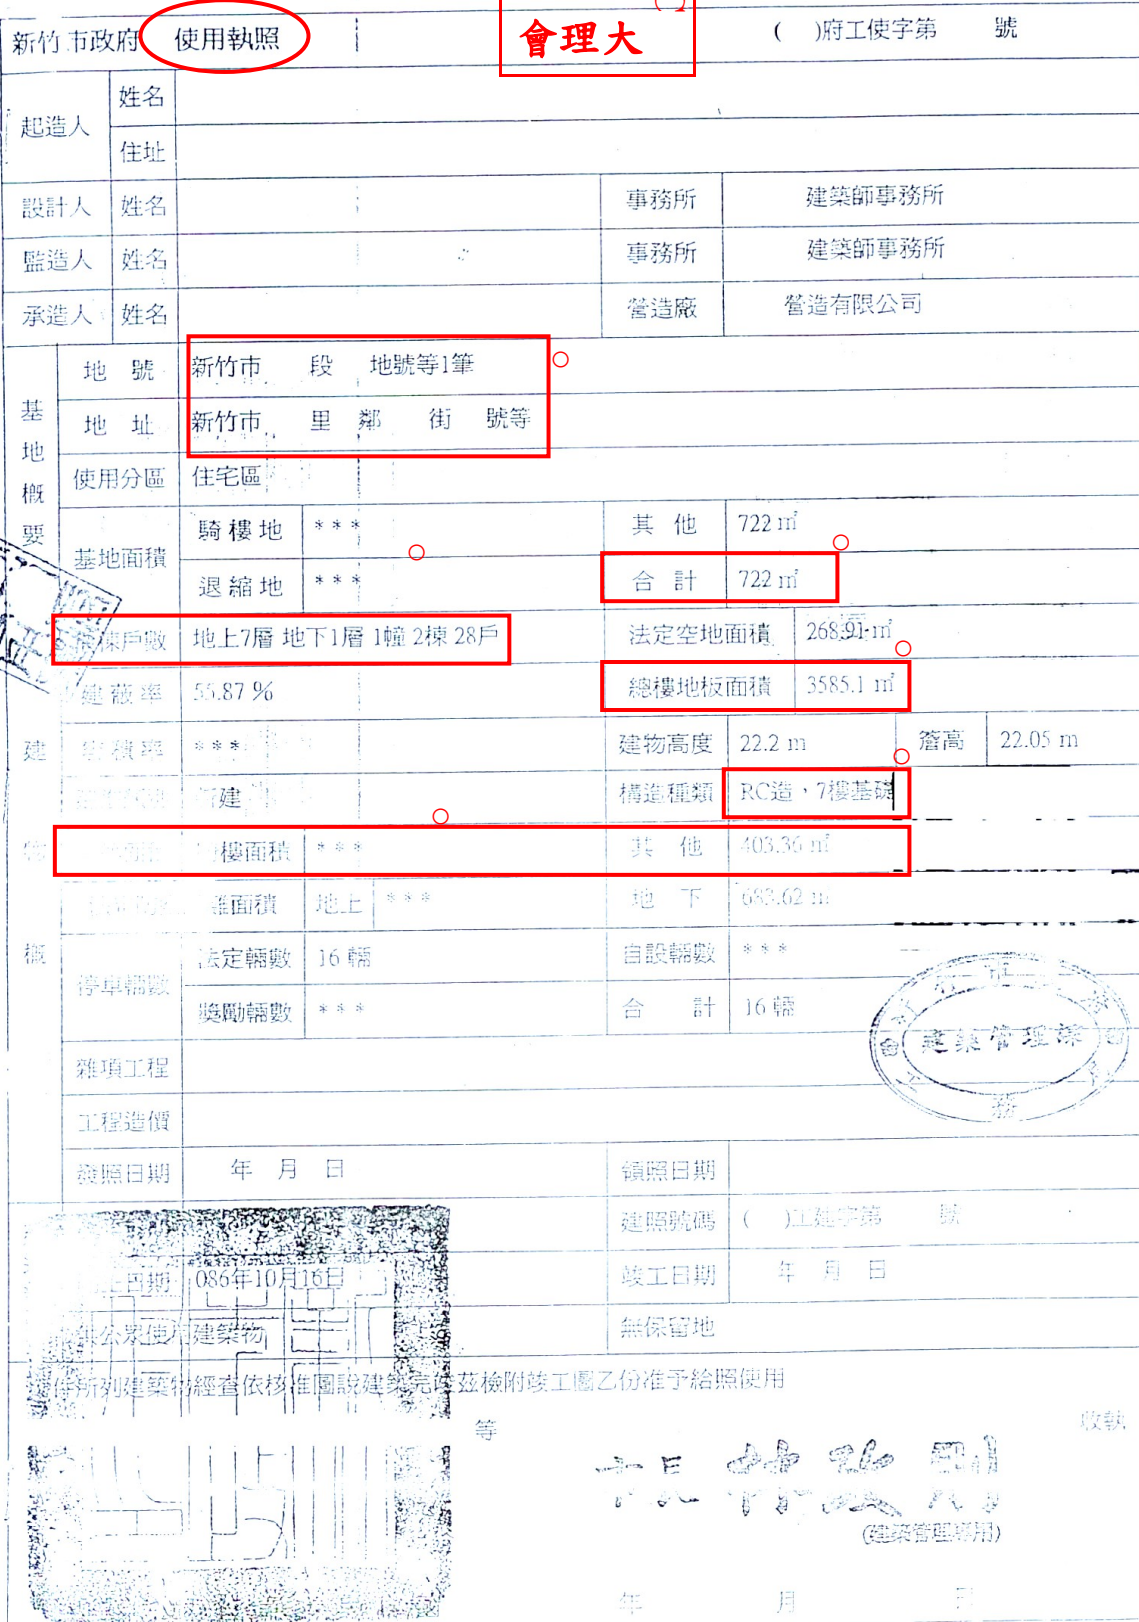 新竹市政府 使用執照
會理大
( )府工使字第 號
起造人 姓名
住址
設計人 姓名 事務所 建築師事務所
監造人 姓名 事務所 建築師事務所
承造人 姓名 營造廠 營造有限公司
基地概要
地 號 新竹市 段 地號等1筆
地 址 新竹市 里 鄰 街 號等
使用分區 住宅區
基地面積 騎樓地 *** 其 他 722 ㎡
退縮地 *** 合 計 722 ㎡
棟戶數 地上7層 地下1層 1幢 2棟 28戶 法定空地面積 268.91 ㎡
建蔽率 55.87 % 總樓地板面積 3585.1 ㎡
建 容積率 *** 建物高度 22.2 m 簷高 22.05 m
建 構造種類 RC造,7樓基礎
物 樓面積 *** 其 他 403.36 ㎡
面積 地上 *** 地 下 683.62 ㎡
概
停車輛數 法定輛數 16 輛 自設輛數 ***
獎勵輛數 *** 合 計 16 輛
建築管理課
雜項工程
工程造價
發照日期 年 月 日 領照日期
建照號碼 ( )工建字第 號
日期 086年10月16日 竣工日期 年 月 日
公眾使用建築物 無保留地
件所列建築物經查依核准圖說建築完竣茲檢附竣工圖乙份准予給照使用
等 收執
(建築管理專用)
年 月 日